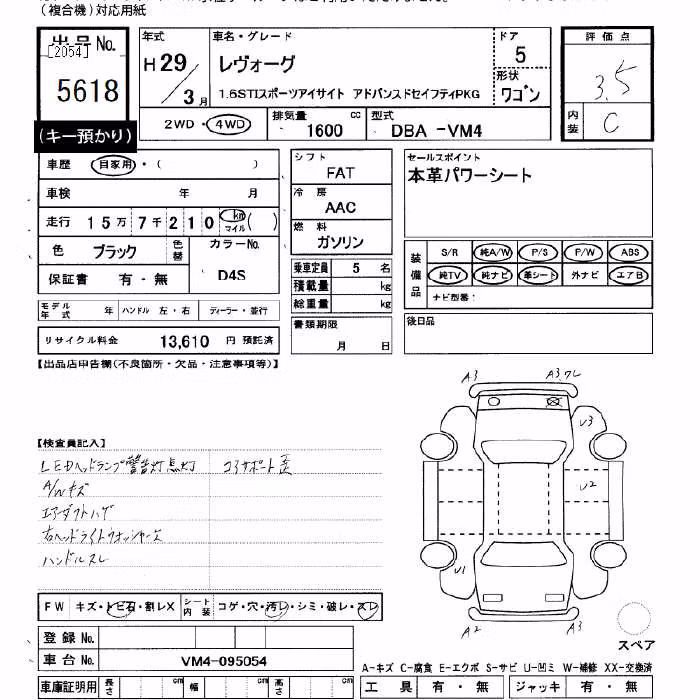 (複合機)対応用紙
出品No.
[2054]
5618
(キー預かり)
年式
H29/3月
車名・グレード
レヴォーグ
1.6STIスポーツアイサイト アドバンスドセイフティPKG
ドア
5
形状
ワゴン
評価点
3.5
内装
C
2WD・4WD
排気量
1600
cc
型式
DBA -VM4
車歴
自家用・( )
車検 年 月
走行 15万7千210 km マイル ( )
色 ブラック
色替
カラーNo.
D4S
保証書 有・無
シフト
FAT
冷房
AAC
燃料
ガソリン
乗車定員 5 名
積載量 kg
総重量 kg
セールスポイント
本革パワーシート
装備品
S/R 純A/W P/S P/W ABS
純TV 純ナビ 革シート 外ナビ エアB
ナビ型番:
モデル年式 年 ハンドル 左・右 ディーラー・並行
リサイクル料金 13,610 円 預託済
書類期限
月 日
後日品
【出品店申告欄(不良箇所・欠品・注意事項等)】
【検査員記入】
LEDヘッドランプ警告灯点灯 コアサポート歪
A/Wキズ
エアダクトハゲ
右ヘッドライトウォッシャーズ
ハンドルスレ
A3
A3 ワレ
U3
U2
U1
A2
A3
スペア
FW キズ・トビ石・割レX
シート内装 コゲ・穴・汚レ・シミ・破レ・スレ
登録No.
車台No. VM4-095054
車庫証明用 長さ cm 幅 cm 高さ cm
A-キズ C-腐食 E-エクボ S-サビ U-凹ミ W-補修 XX-交換済
工具 有・無 ジャッキ 有・無